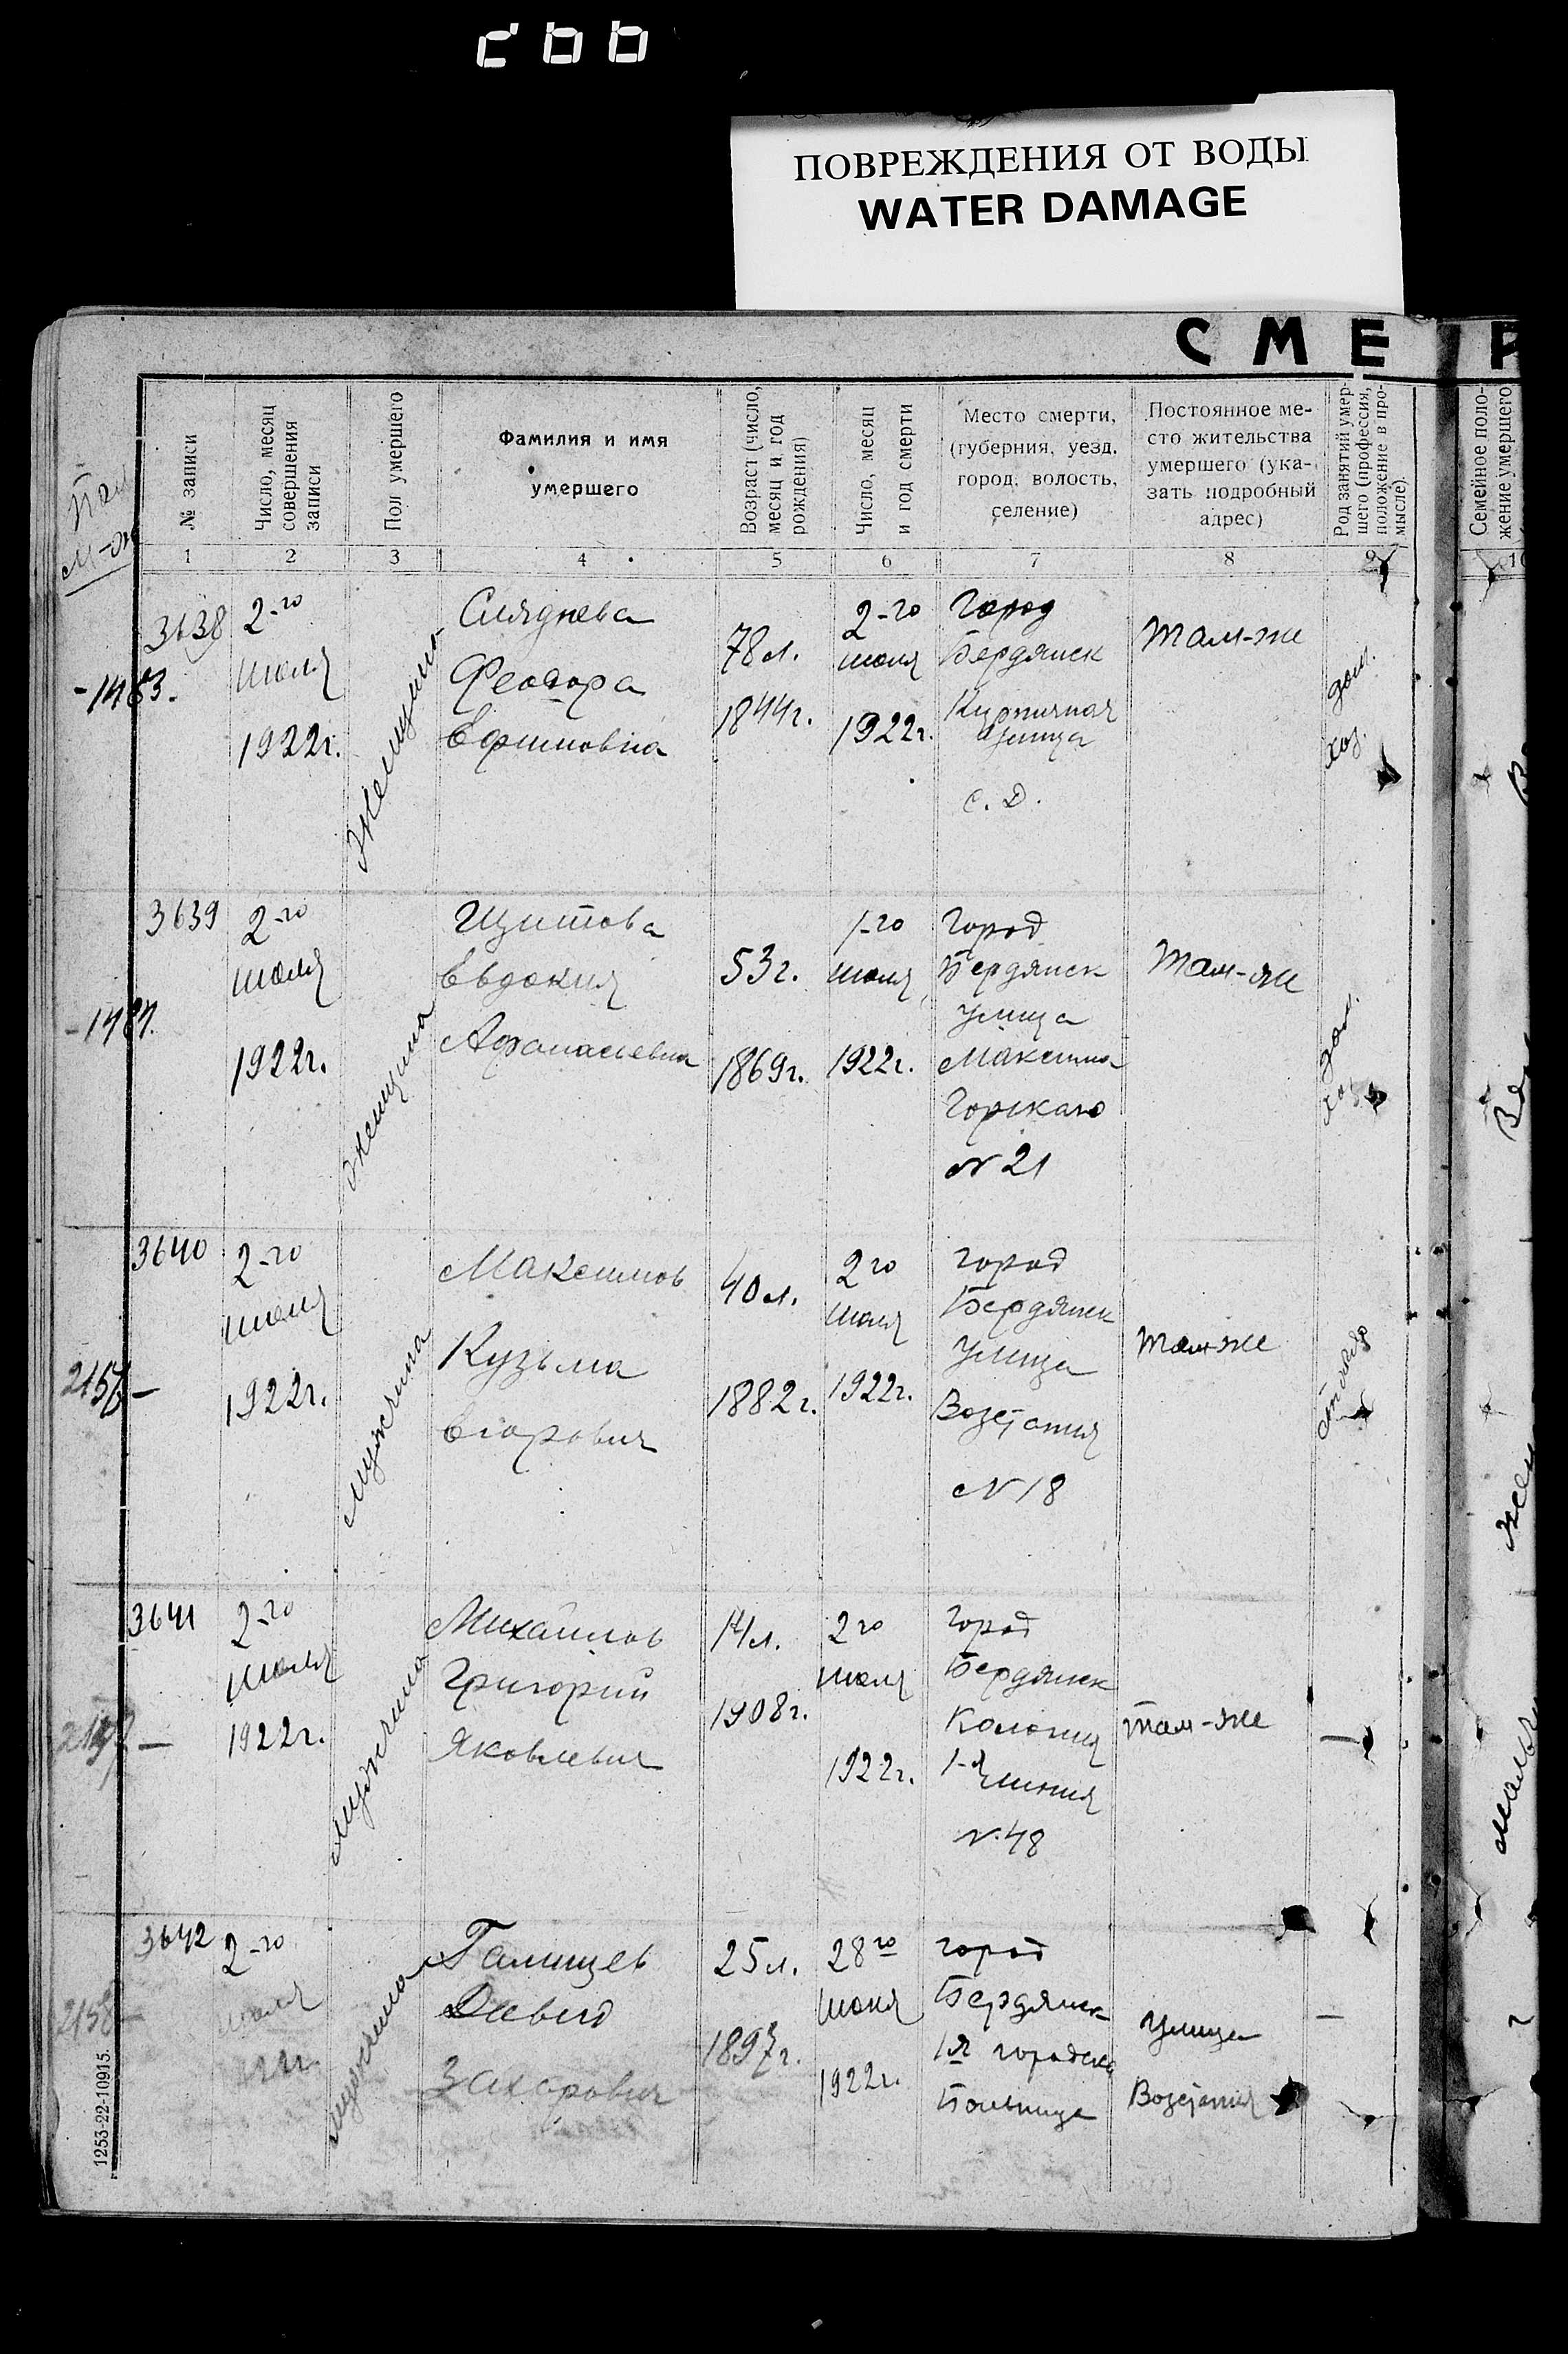 ПОВРЕЖДЕНИЯ ОТ ВОДЫ
WATER DAMAGE
СМЕ
№ записи
Число, месяц
совершения
записи
Пол умершего
Фамилия и имя
умершего
Возраст (число,
месяц и год
рождения)
Число, месяц
и год смерти
Место смерти,
(губерния, уезд,
город, волость,
селение)
Постоянное ме-
сто жительства
умершего (ука-
зать подробный
адрес)
Род занятий умер-
шего (профессия,
положение в про-
мысле).
Семейное поло-
жение умершего
1 2 3 4 5 6 7 8 9 10
3638
-1483.
2-го
июля
1922г.
Женщина
Феодора
Ефимовна
78 л.
1844г.
2-го
июля
1922г.
Город
Бердянск
Кирпичная
улица
с. д.
Там-же
дом.
хоз.
3639
2-го
июля
1922г.
женщина
Щитова
Евдокия
Афанасьевна
53г.
1869г.
1-го
июля
1922г.
Город
Бердянск
улица
Максима
Горькаго
N 21
Там-же
дом.
хоз.
3640
2-го
июля
1922г.
мужчина
Максимов
Кузьма
Егорович
40 л.
1882г.
2го
июля
1922г.
город
Бердянск
Улица
N 18
там-же
столяр
3641
2-го
июля
1922г.
мужчина
Михайлов
Григорий
Яковлевич
14 л.
1908г.
2го
июля
1922г.
город
Бердянск
Колония
1-я линия
N. 48
там-же
—
3642
2158-
2-го
июля
мужчина
Галищев
Давыд
Захарович
25 л.
1897г.
28го
июня
1922г.
город
Бердянск
1я городская
Больница
Улица
—
1253-22-10915.